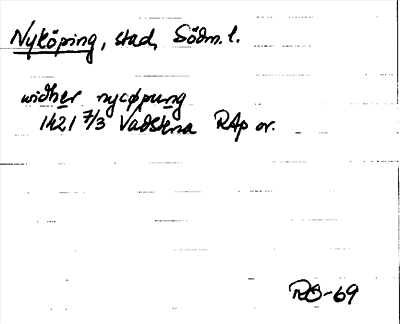 Nyköping, stad, Södm. l.
widher nycøpung
1421 7/3 Vadstena RAp or.
RO-69